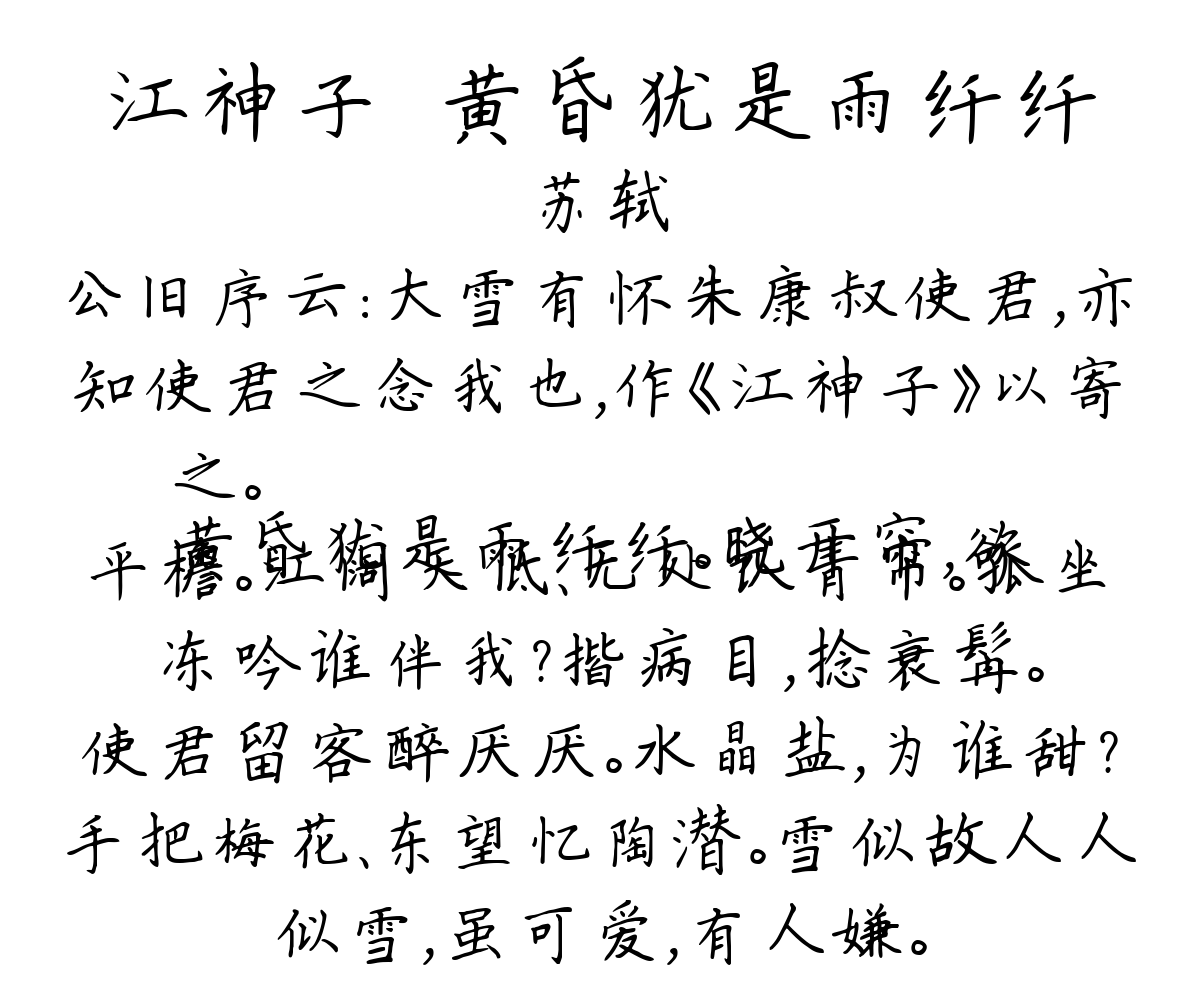 江神子 黄昏犹是雨纤纤
苏轼
公旧序云:大雪有怀朱康叔使君,亦
知使君之念我也,作《江神子》以寄
之。
黄昏犹是雨纤纤。晓开帘,欲
平檐。江阔天低、无处认青帘。孤坐
冻吟谁伴我?揩病目,捻衰髯。
使君留客醉厌厌。水晶盐,为谁甜?
手把梅花、东望忆陶潜。雪似故人人
似雪,虽可爱,有人嫌。